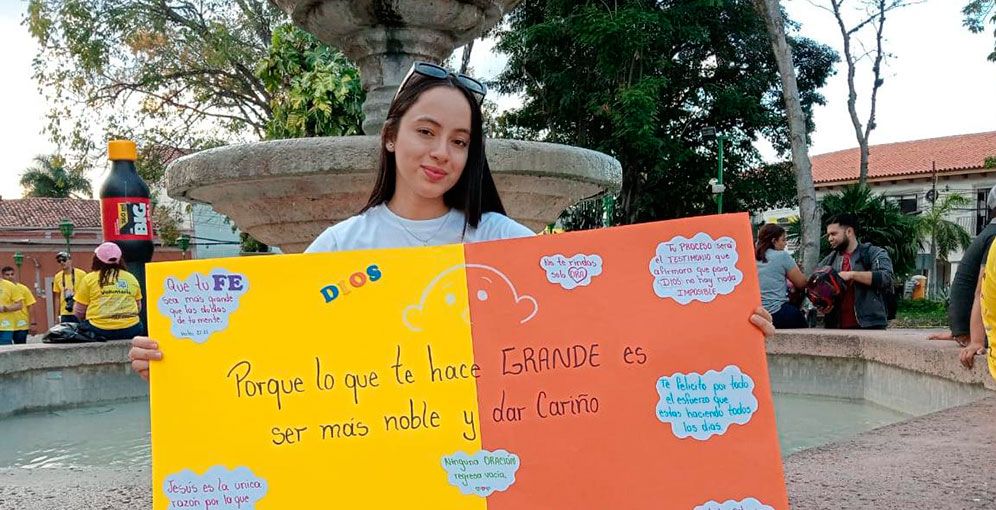 DIOS
Que tu FE
sea más grande
que las dudas
de tu mente.
No te rindas
solo ORA
Tu PROCESO será
el TESTIMONIO que
afirmara que para
DIOS no hay nada
IMPOSIBLE
Porque lo que te hace GRANDE es
ser más noble y dar Cariño
Te felicito por todo
el esfuerzo que
estas haciendo todos
los días
Ninguna ORACIÓN
regresa vacía
Jesús es la unica
razón por la que
BIG
Voluntario